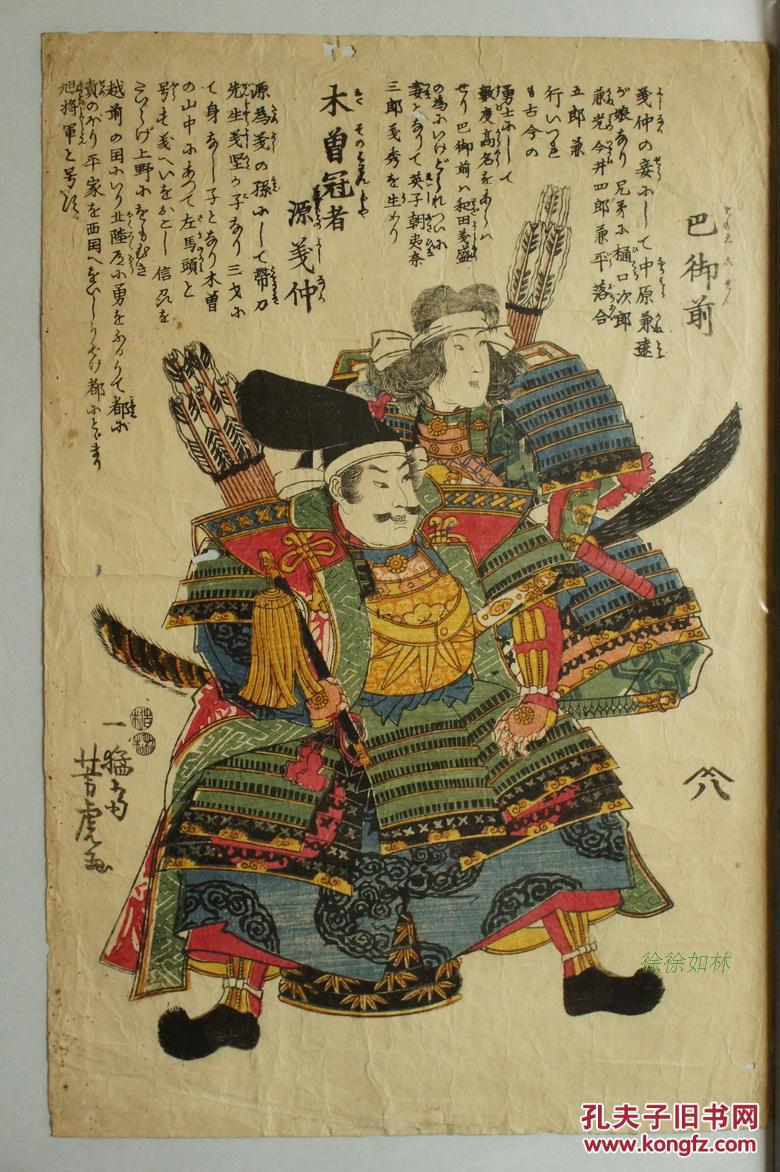 巴御前
義仲の妾にして中原兼遠
が娘なり兄弟に樋口次郎
兼光今井四郎兼平落合
五郎兼
行いづれ
も古今の
勇士にして
数度高名をあらハ
せり巴御前ハ和田義盛
の為にいけどられついに
妻となりて英子朝夷奈
三郎義秀を生めり
木曽冠者
源義仲
源為義の孫にして帯刀
先生義賢が子なり三才に
て身なし子となり木曽
の山中にあつて左馬頭と
号し
越前の国にいり北陸道に勇をふるひて都に
責のぼり平家を西国へをいしりぞけ都にとゞまり
旭将軍と号す
一猛斎
芳虎画
改
八
徐徐如林
孔夫子旧书网
www.kongfz.com